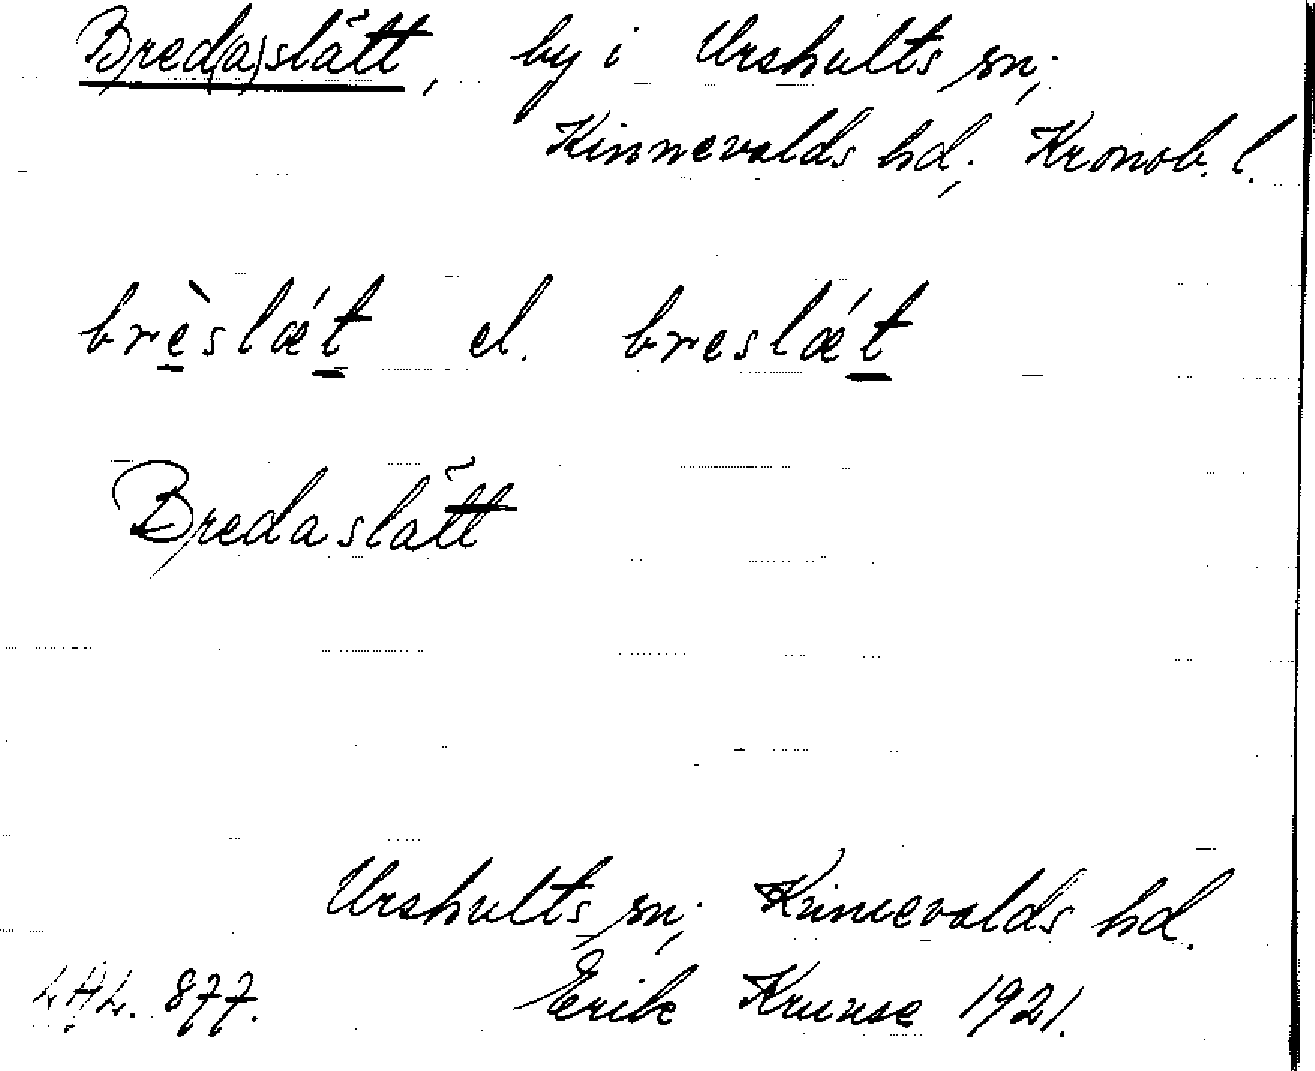 Bred(a)slätt, by i Urshults sn;
Kinnevalds hd; Kronob. l.
brèslǽt el. breslǽt
Bredaslätt
Urshults sn; Kinnevalds hd.
LAL. 877. Erik Kruuse 1921.